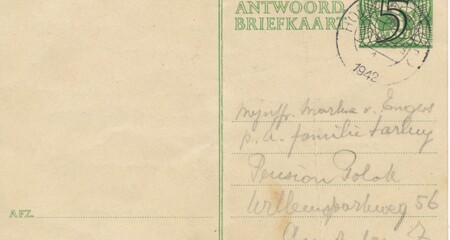 ANTWOORD
BRIEFKAART
5
HO
1942
mejuffr. Martha v. Engers
p. a. familie
Pension Polak
Willemsparkweg 56
Z
AFZ.